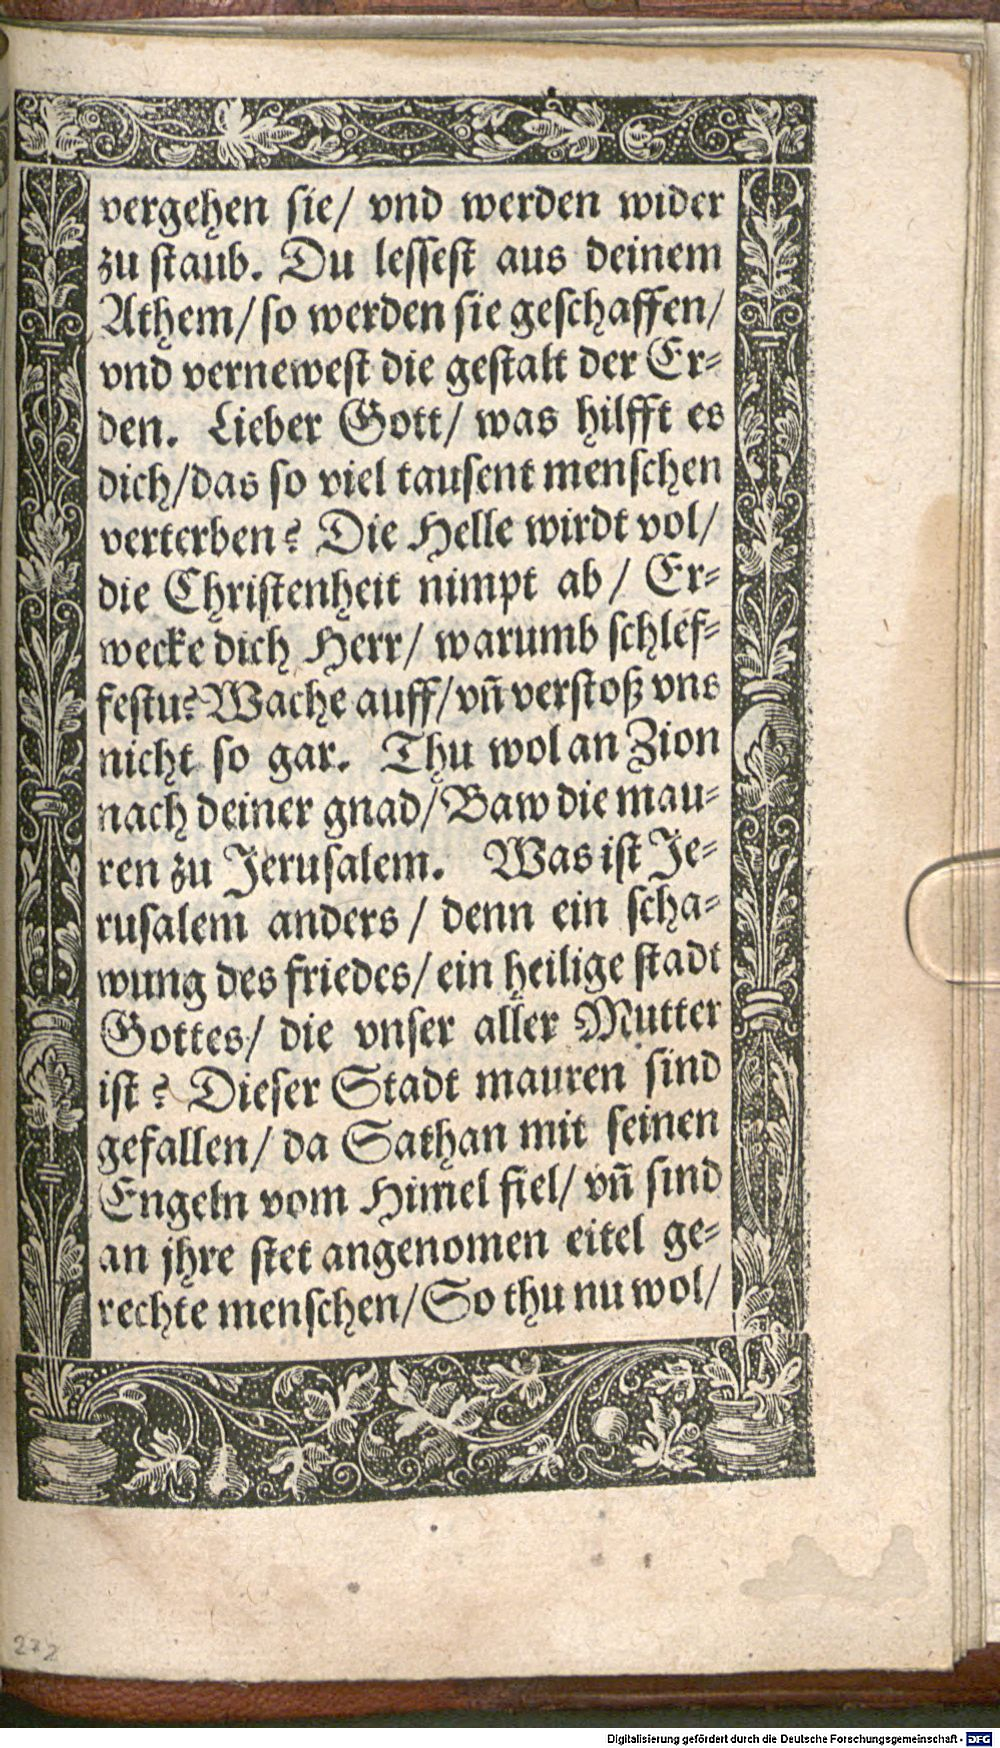 vergehen sie/ vnd werden wider
zu staub. Du lessest aus deinem
Athem/ so werden sie geschaffen/
vnd vernewest die gestalt der Er⸗
den. Lieber Gott/ was hilfft es
dich/das so viel tausent menschen
verterben? Die Helle wirdt vol/
die Christenheit nimpt ab/ Er⸗
wecke dich Herr/ warumb schlef⸗
festu? Wache auff/ vñ verstoß vns
nicht so gar. Thu wol an Zion
nach deiner gnad/ Baw die mau⸗
ren zu Jerusalem. Was ist Je⸗
rusalem anders/ denn ein scha⸗
wung des friedes/ ein heilige stadt
Gottes/ die vnser aller Mutter
ist? Dieser Stadt mauren sind
gefallen/ da Sathan mit seinen
Engeln vom Himel fiel/ vñ sind
an jhre stet angenomen eitel ge⸗
rechte menschen/ So thu nu wol/
Digitalisierung gefördert durch die Deutsche Forschungsgemeinschaft - DFG